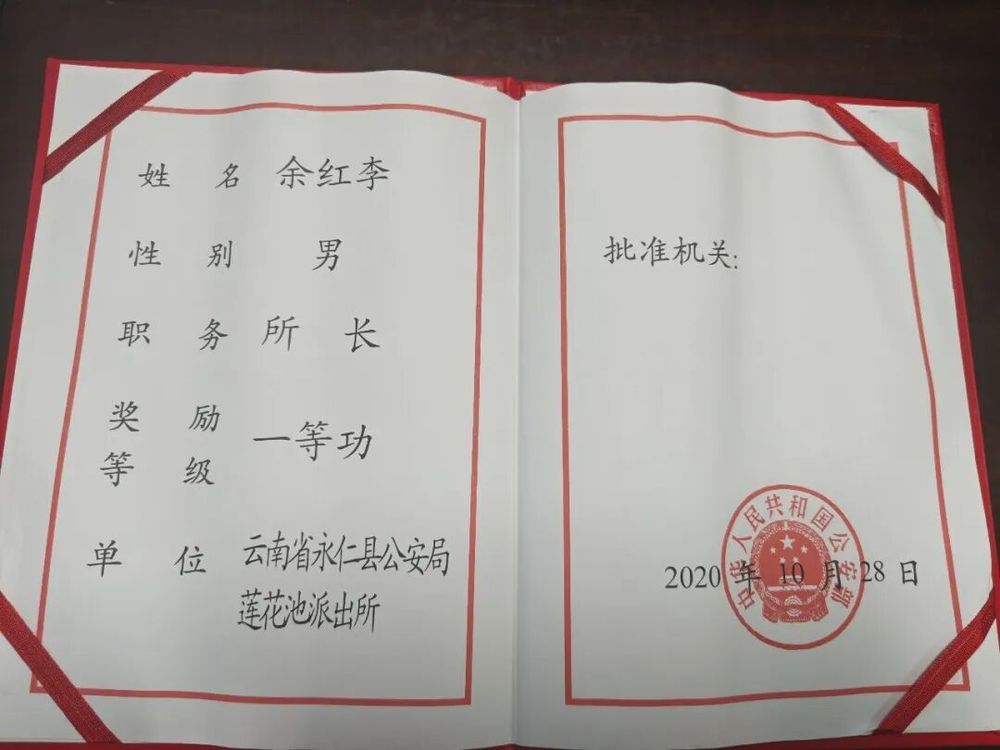 姓 名 余红李
性 别 男
职 务 所 长
奖 励
等 级
一等功
单 位 云南省永仁县公安局
莲花池派出所
批准机关:
中华人民共和国公安部
2020 年 10 月 28 日